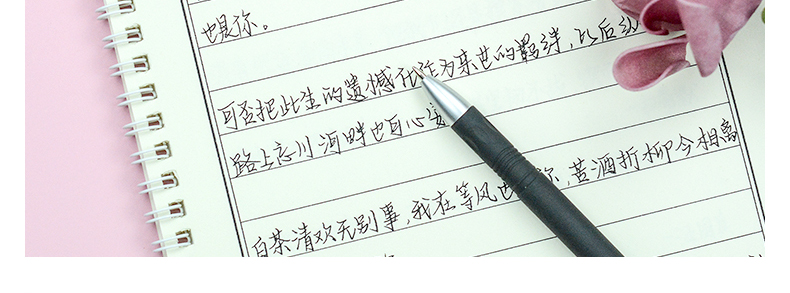 也是你。
可否把此生的遗憾化作为来世的羁绊，比后
路上忘川河畔也可心
白茶清欢无别事，我在等风也 你，苦酒折柳今相离